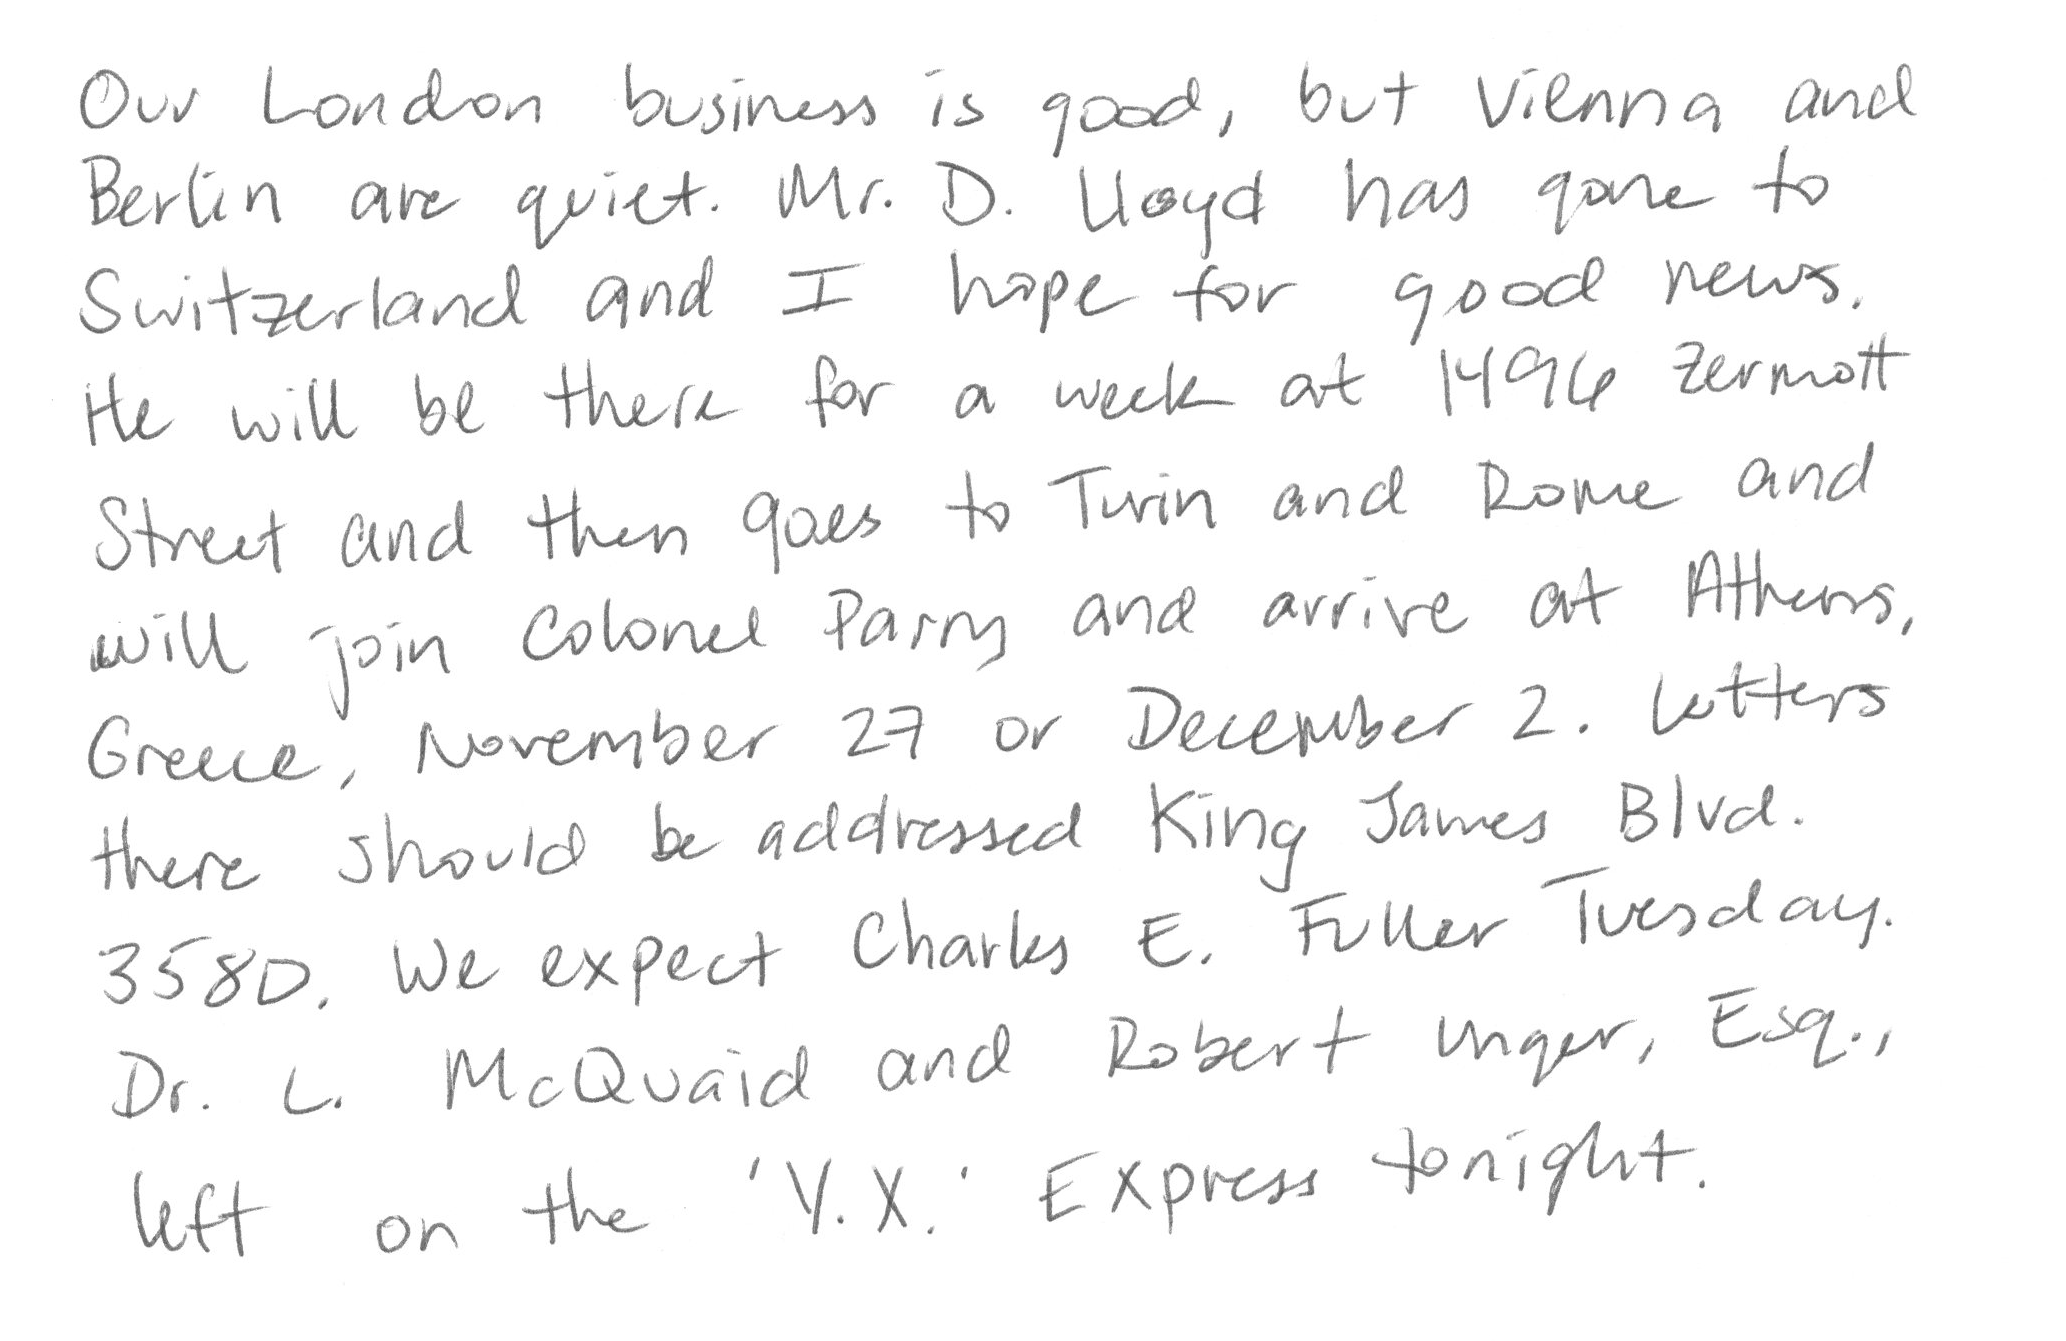 Our London business is good, but Vienna and
Berlin are quiet. Mr. D. Lloyd has gone to
Switzerland and I hope for good news.
He will be there for a week at 1496 Zermott
Street and then goes to Turin and Rome and
will join Colonel Parry and arrive at Athens,
Greece, November 27 or December 2. Letters
there should be addressed King James Blvd.
3580. We expect Charles E. Fuller Tuesday.
Dr. L. McQuaid and Robert Unger, Esq.,
left on the 'Y.X.' Express tonight.